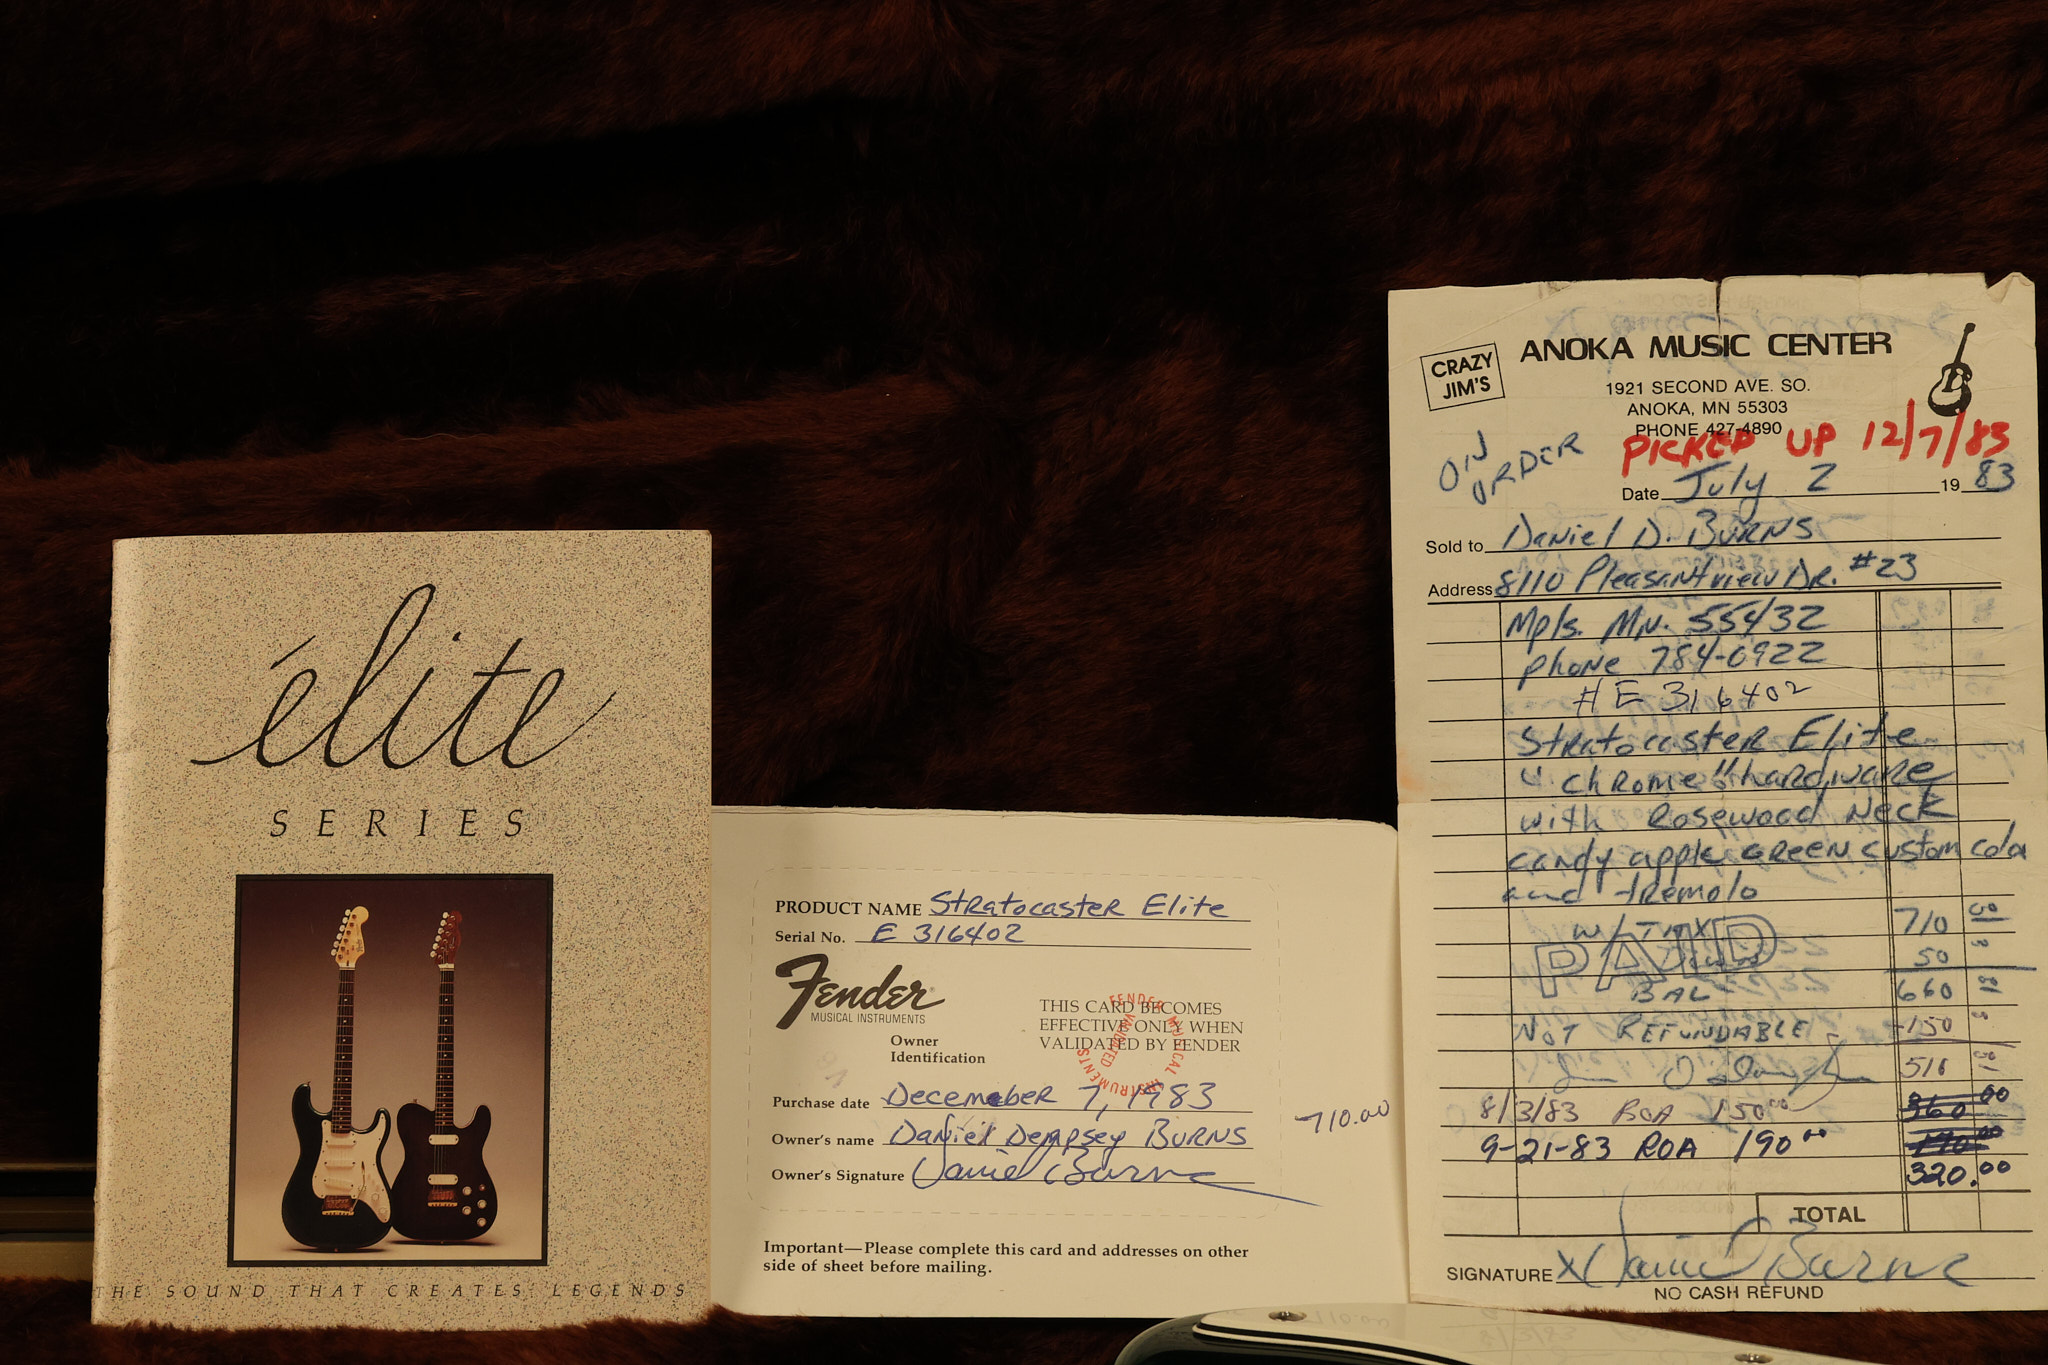 élite
SERIES
THE SOUND THAT CREATES LEGENDS
PRODUCT NAME Stratocaster Elite
Serial No. E 316402
Fender
MUSICAL INSTRUMENTS
Owner
Identification
THIS CARD BECOMES
EFFECTIVE ONLY WHEN
VALIDATED BY FENDER
FENDER MUSICAL INSTRUMENTS
VALIDATED
Purchase date December 7, 1983
Owner's name Daniel Dempsey Burns
Owner's Signature Daniel Burns
710.00
Important—Please complete this card and addresses on other
side of sheet before mailing.
CRAZY
JIM'S
ANOKA MUSIC CENTER
1921 SECOND AVE. SO.
ANOKA, MN 55303
PHONE 427-4890
ON
ORDER
PICKED UP 12/7/83
Date July 2 19 83
Sold to Daniel D. Burns
Address 8110 Pleasantview Dr. #23
Mpls. Mn. 55432
phone 784-0922
# E 316402
Stratocaster Elite
"chrome" hardware
with Rosewood Neck
candy apple green custom color
and tremolo
W/ TAX 710 00
PAID
50
BAL 660
NOT REFUNDABLE -150
510
8/3/83 ROA 150 00 360 00
9-21-83 ROA 190 00
320.00
TOTAL
SIGNATURE X Daniel D Burns
NO CASH REFUND